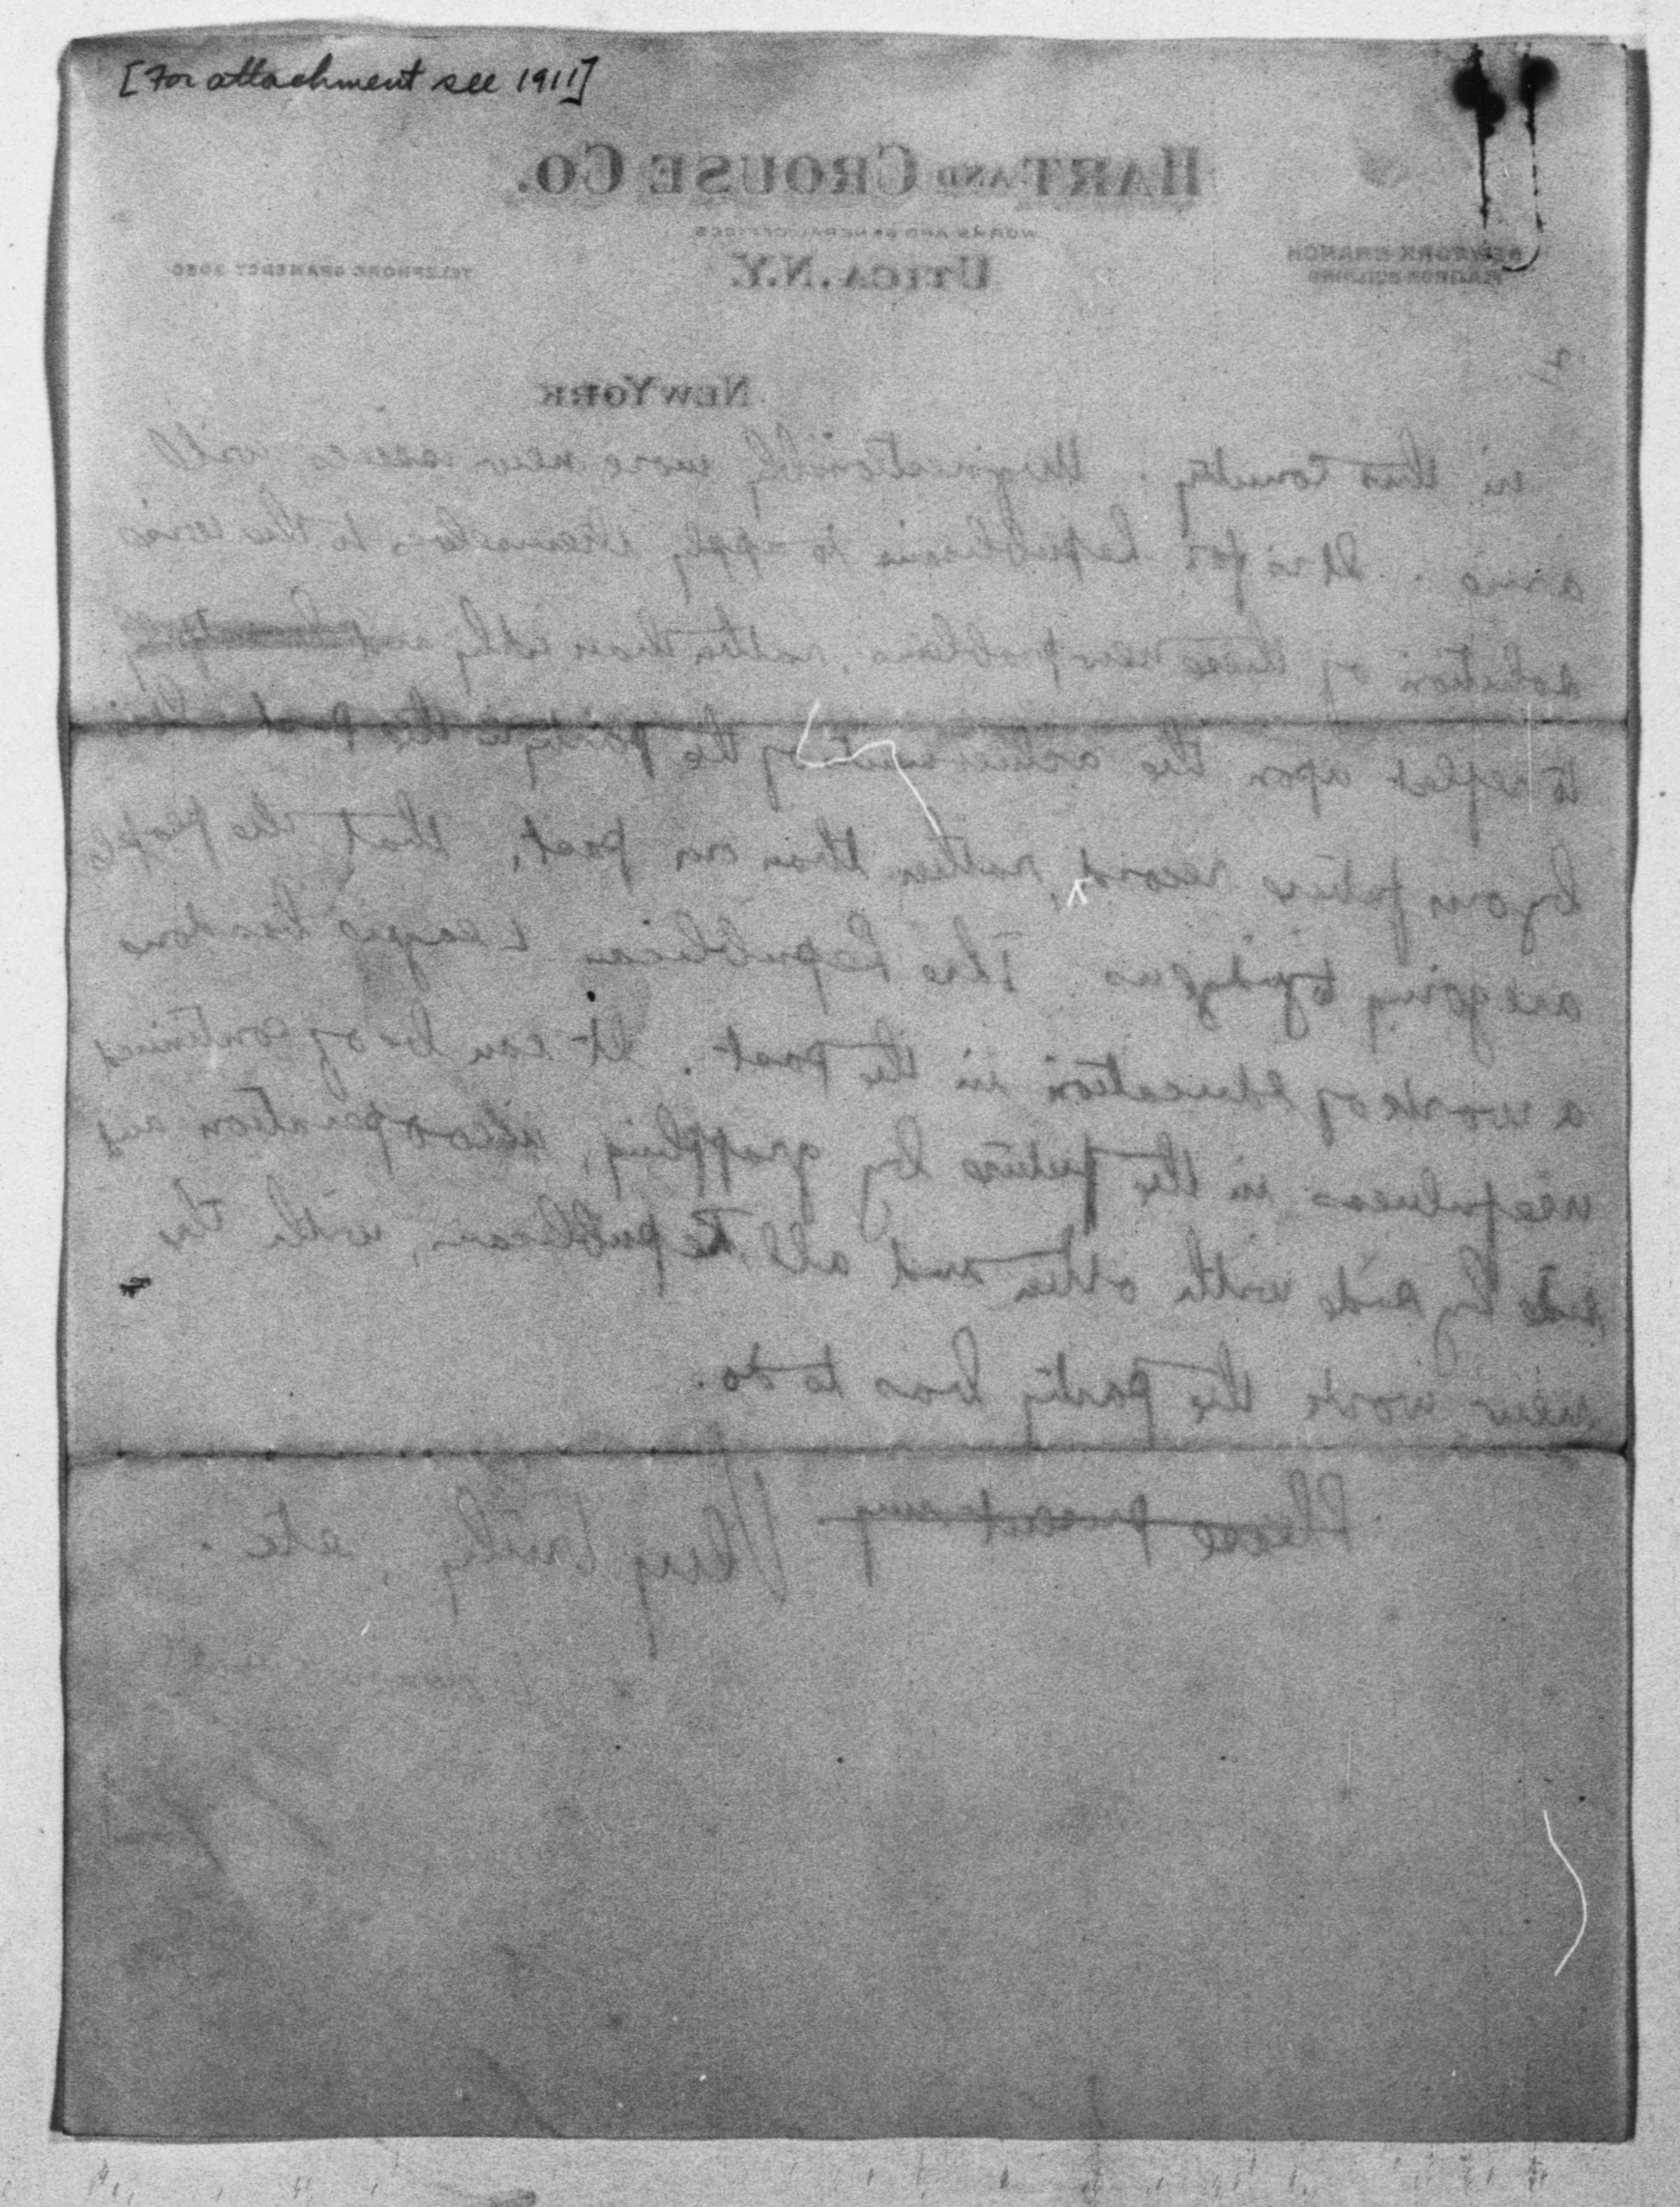 [For attachment see 1911]
HART AND CROUSE CO.
WORKS AND GENERAL OFFICES
UTICA, N.Y.
NEW YORK BRANCH
FLATIRON BUILDING
TELEPHONE GRAMERCY
NEW YORK
2/
in this County. Unquestionably more new issues will
arise. It is for Republicans to apply themselves to the wise
solution of these new problems, rather than idly and
to reflect upon the achievements of the party in the past. It is
by our future record, rather than our past, that the people
are going to judge us. The Republican League has done
a work of education in the past. It can be of continued
usefulness in the future by grappling, in cooperation and
side by side with other and all Republicans, with the
new work the party has to do.
Please present my Very truly, etc.